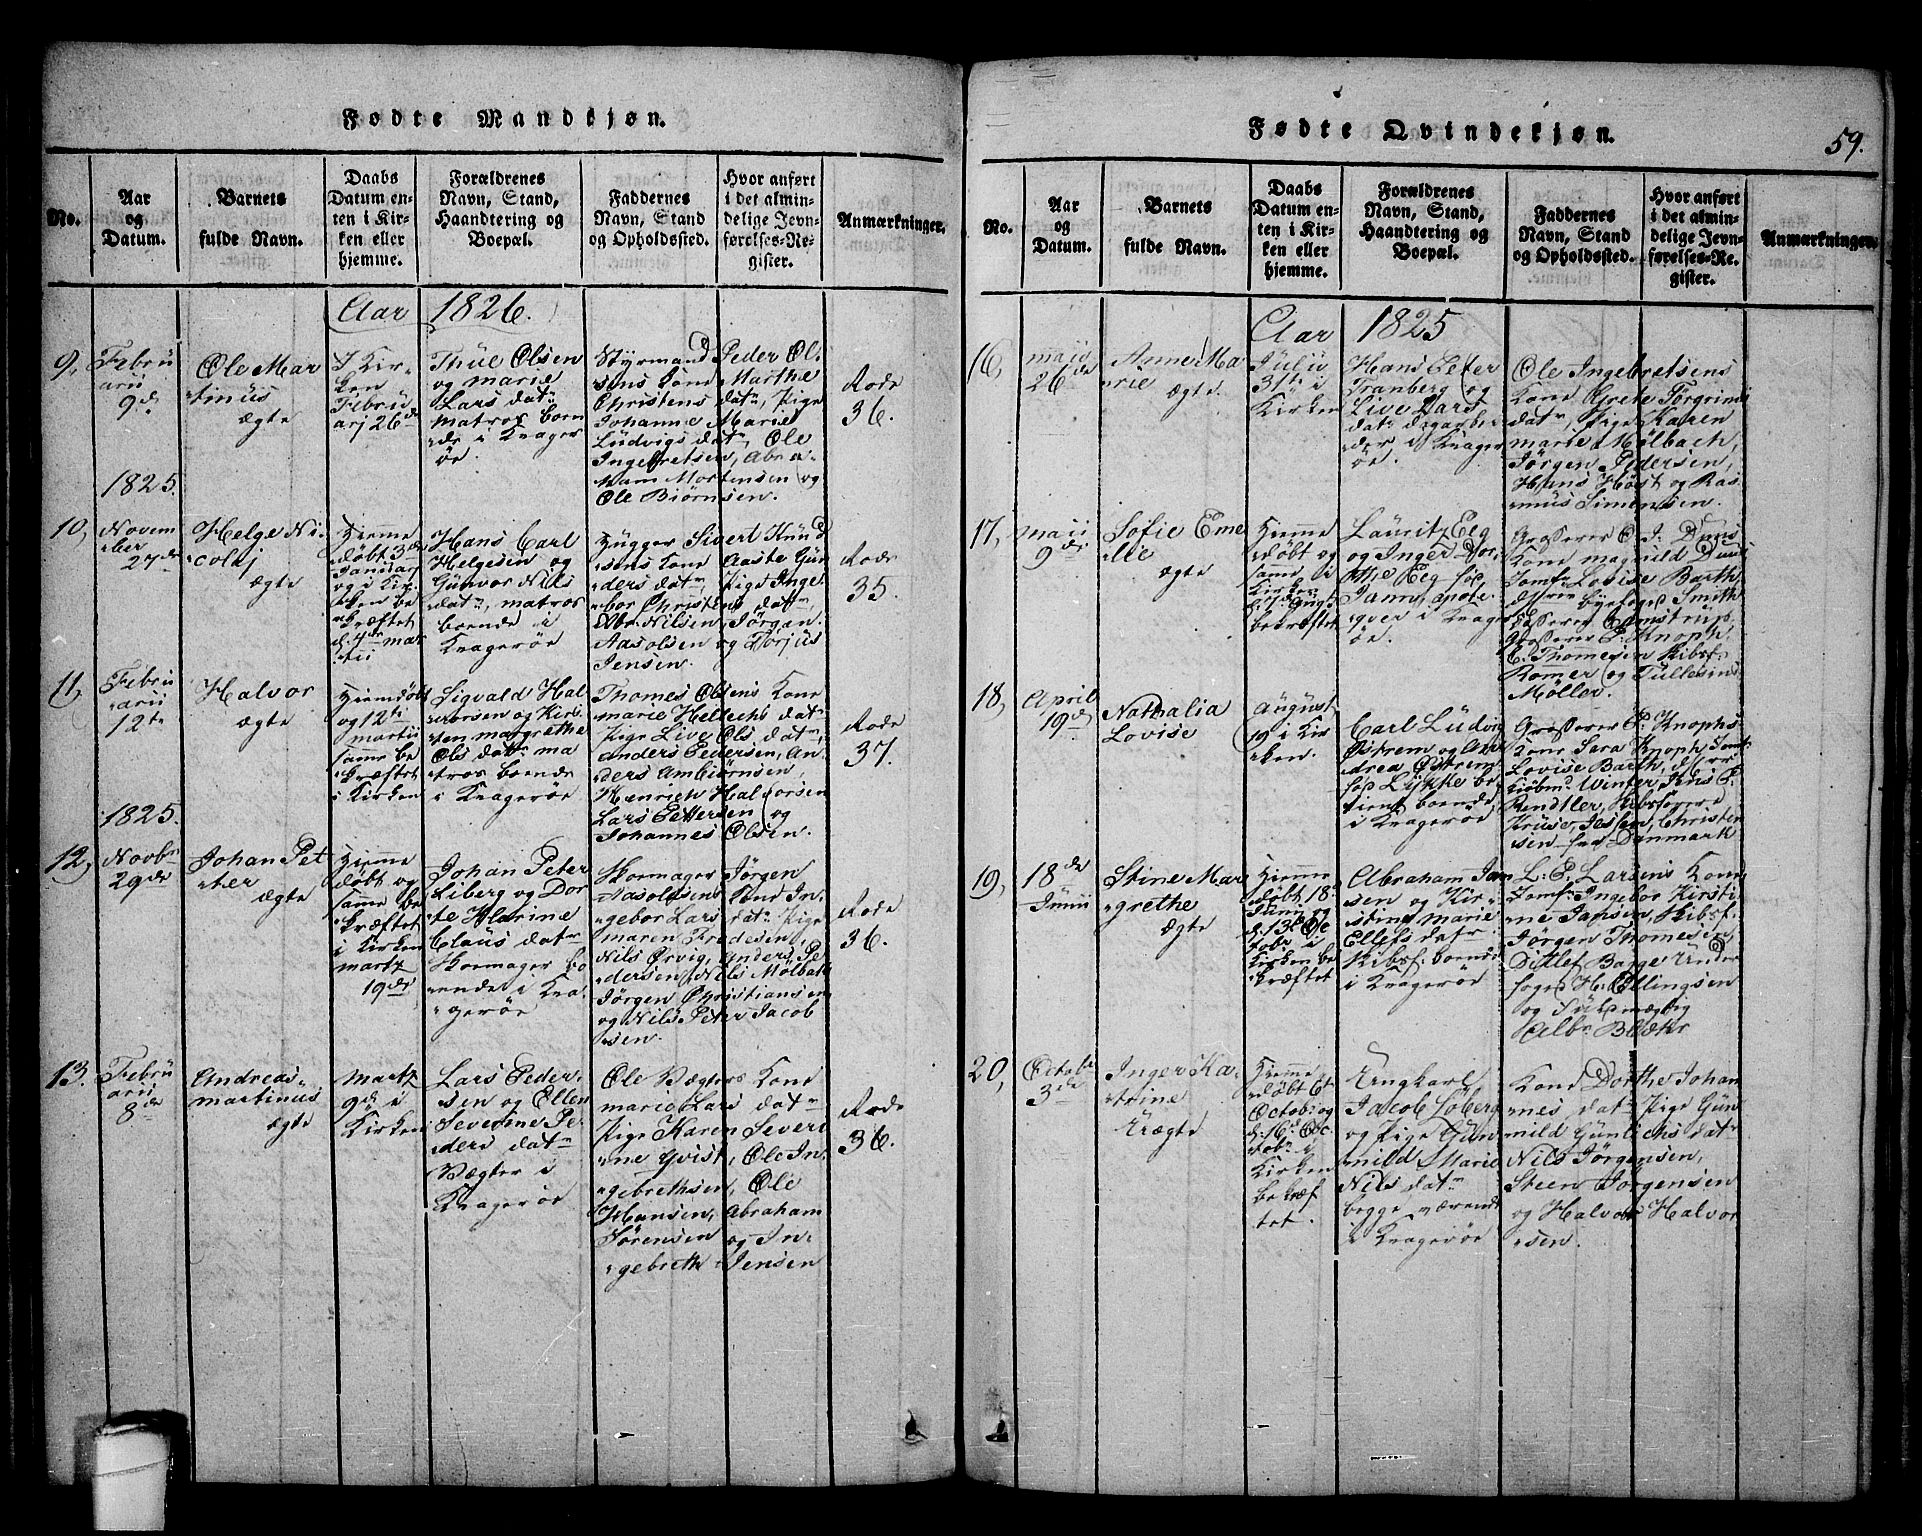 Fødte Mandkjøn.
No.
Aar
og
Datum.
Barnets
fulde Navn.
Daabs
Datum en-
ten i Kir-
ken eller
hjemme.
Forældrenes
Navn, Stand,
Haandtering og
Boepæl.
Faddernes
Navn, Stand
og Opholdssted.
Hvor anført
i det almin-
delige Jevn-
førelses-Re-
gister.
Anmærkninger.
Aar 1826.
9,
Febru
arii
9de
Ole Mar
tinus
ægte
I Kir-
ken
Febru
arj 26de
Thue Olsen
og marie
Lars datr
matros boen
de i Krager
øe.
Styrmand Peder Ol-
sens Kone Marthe
Christens datr, Pige
Johanne Marie
Ludvigs datr, Ole
Ingebretsen, Abra
ham Mortensen og
Ole Biørnsen.
Rode
36.
1825.
10,
Novem
ber
27de
Helge Ni
colaj
ægte
Hjemme
døbt 3de
Januar
og i Kir
ken be
kræftet
d. 7de mar
tii
Hans Carl
Helgesen og
Gunvor Nils
datr, matros
boende i
Kragerøe
Hugger Sivert Knud
sens Kone Aaste Gun
ders datr Pige Inge
bor Christens datr,
Abr. Nilsen, Jørgen
Aasolsen og Torjus
Jensen.
Rode
35.
11,
Febru
arii
12te
Halvor
ægte
Hiemdøbt
og 12te
martii
samme be
kræftet
i Kirken
Sigvald Hal
vorsen og Kirs
ten margrethe
Ols datr ma
tros boende
i Kragerøe
Thomes Olsens Kone
marie Hellechs dat
Pige Live Ols datr,
Anders Pedersen, An
ders Ambiørnsen,
Henrich Halvorsen
Lars Pettersen og
Johannes Olsen.
Rode
37.
1825.
12,
Novbr
29de
Johan Pet
ter
ægte
Hjemme
døbt og
samme be
kræftet
i Kirken
martz
19de
Johan Peter
Liberg og Dor
te Marine
Claus datr
Skomager bo
ende i Kra
gerøe
Skomager Jørgen
Aasolsens Kone In
gebor Lars datr Pige
maren Fredesen,
Nils Ørvig, Anders Pe
dersen, Nils Mølbak
Jørgen Christiansen
og Nils Peter Jacob
sen.
Rode
36.
13.
Febru
arii
8de
Andreas
martinus
ægte
Martz
9de i
Kirken
Lars Peder
sen og Ellen
Severine Pe
ders datr
Vægter i
Kragerøe
Ole Vægters Kone
marie Lars datr
Pige Karen Severi
ne Qvist, Ole In
gebrethsen, Ole
Hansen, Abraham
Sørensen og In
gebreth Jensen
Rode
36.
Fødte Qvindekjøn.
59.
No.
Aar
og
Datum.
Barnets
fulde Navn.
Daabs
Datum en-
ten i Kir-
ken eller
hjemme.
Forældrenes
Navn, Stand,
Haandtering og
Boepæl.
Faddernes
Navn, Stand
og Opholdssted.
Hvor anført
i det almin-
delige Jevn-
førelses-Re-
gister.
Anmærkninger.
Aar 1825
16,
maii
26de
Anne Ma
rie
ægte.
Julii
31te i
Kirken
Hans Peter
Tranberg og
Live Lars
datr
i Krager
øe.
Ole Ingebretsens
Kone Grete Torgrims
datr, Pige Karen
marie Mølbach,
Jørgen Pedersen,
Hans Høst og Ras
mus Simensen.
17,
maii
9de
Sofie Eme
lie
ægte
Hjemme
døbt og
samme i
Kirken
bekræftet
Lauritz Eeg
og Inger Dor
the Eeg fød
Jann, apote
ger i Krager
øe.
Grosserer J. Duus
Kone magnild Duus
Jomf. Lovise Barth
byefoged Smith
Camstrup
Grosserer P. Knoph,
C. Thommesen Skibsf.
Romer og Tullesius
Møller.
18,
April
19de
Nathalia
Lovise
August
19 i Kir
ken.
Carl Ludvig
Østrem og An
drea Østrem
fød Lykke be
tient boende
i Kragerøe
Grosserer P. Knophs
Kone Sara Knoph, Jomf.
Lovise Barth, d'Hrr
Kiøbmd Winter, Jens P.
Rendtler, Skibsførere
Kruse, Jessen, Christen
sen fra Danmark
19,
18de
Junii
Stine Mar
grethe
ægte
Hjemme
døbt 18.
Junii og
d. 13 Oc
tobr i
Kirken be
kræftet
Abraham Jan
sen og Kir
stine Marie
Ellefs datr
Skibsf. boende
i Kragerøe
L. E. Larsens Kone
Jomf. Ingebor Kirsti
ne Jansen, Skibsf.
Jørgen Thomesen
Ditlef Bagge Under
foged H. Ellingsen
og Fuldmægtig
Alb. Blæhr
20,
Octobr
3de
Inger Ka
trine
Uægte
Hjemme
døbt 6t
Octobr og
d. 16de Oc
tobr i
Kirken
bekræf
tet.
Ungkarl
Jacob Søberg
og Pige Gun
nild Marie
Nils datr
begge værende
i Kragerøe
Kone Dorthe Johan
nes datr Pige Gun
nild Gunlichs datr
Nils Jørgensen,
Steen Jørgensen
og Halvor Halvor
sen.